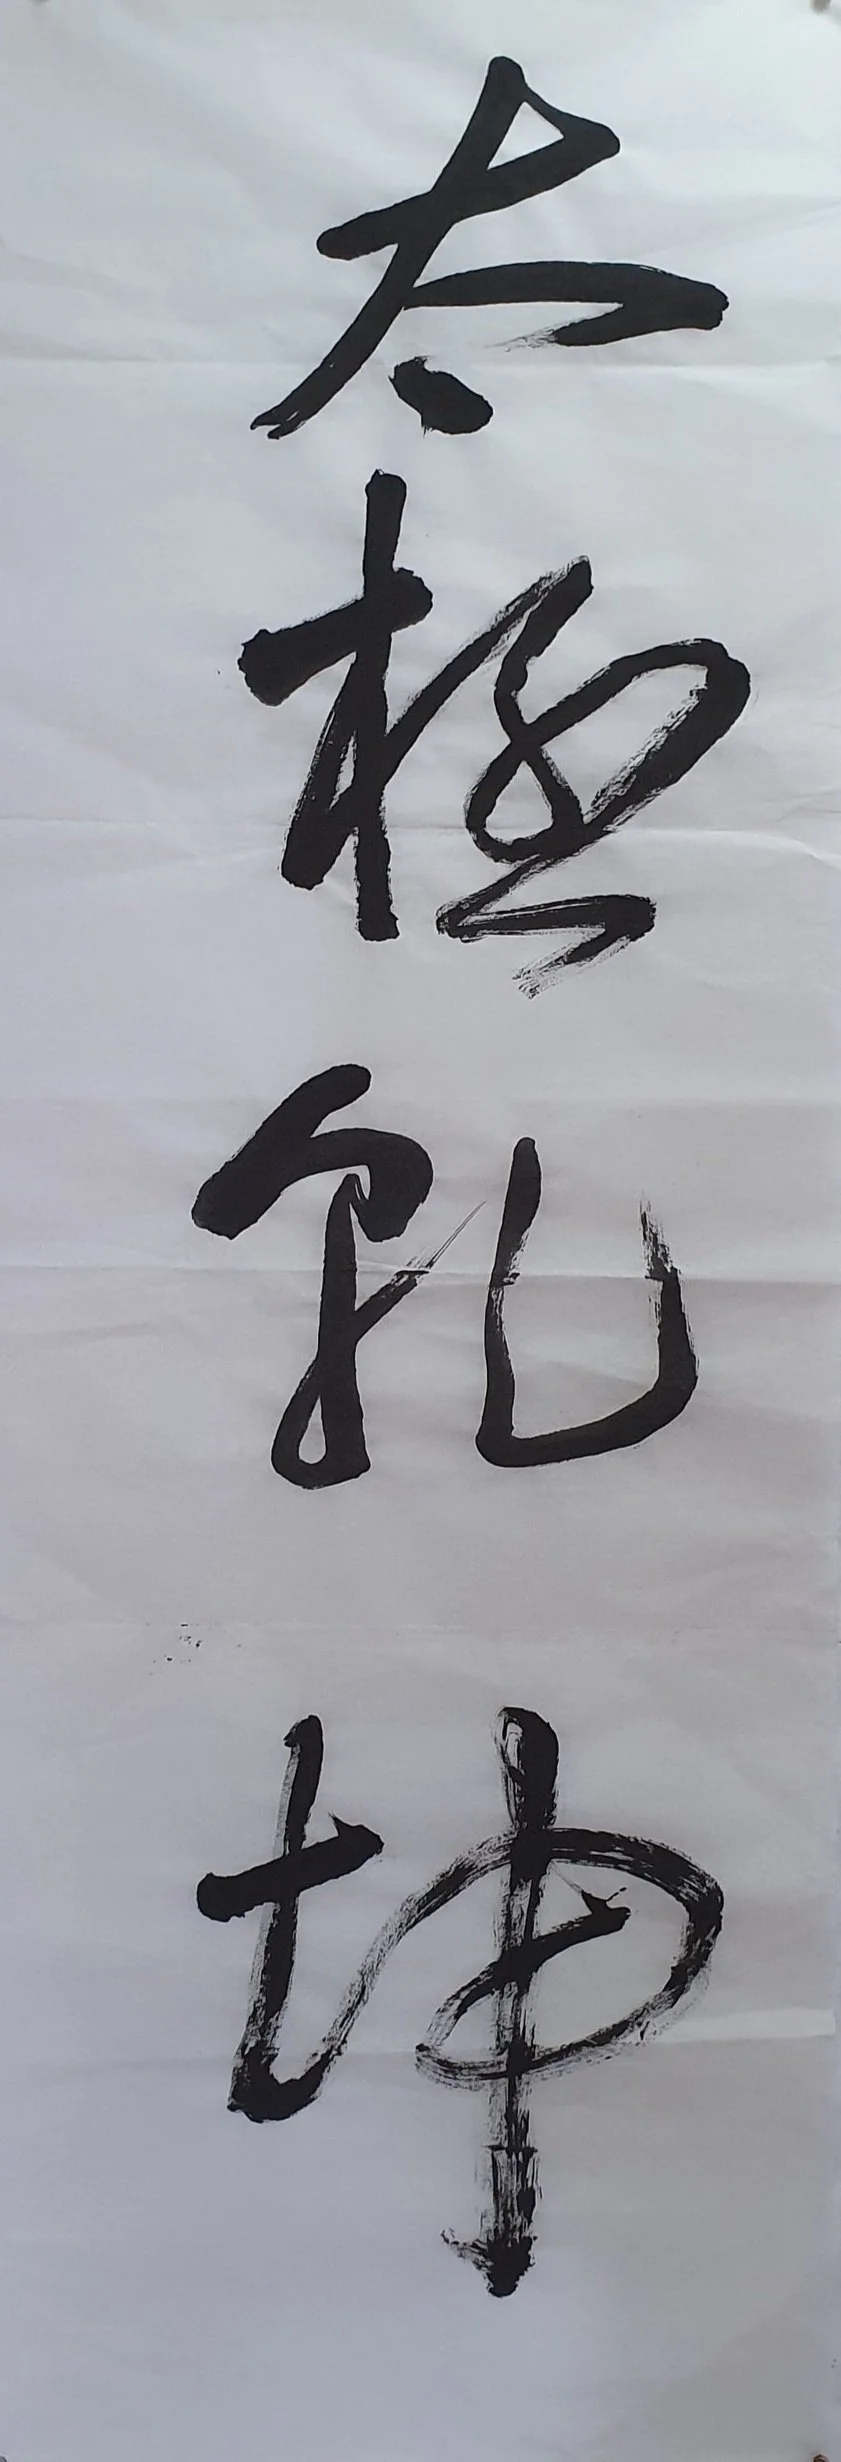 太極乾坤